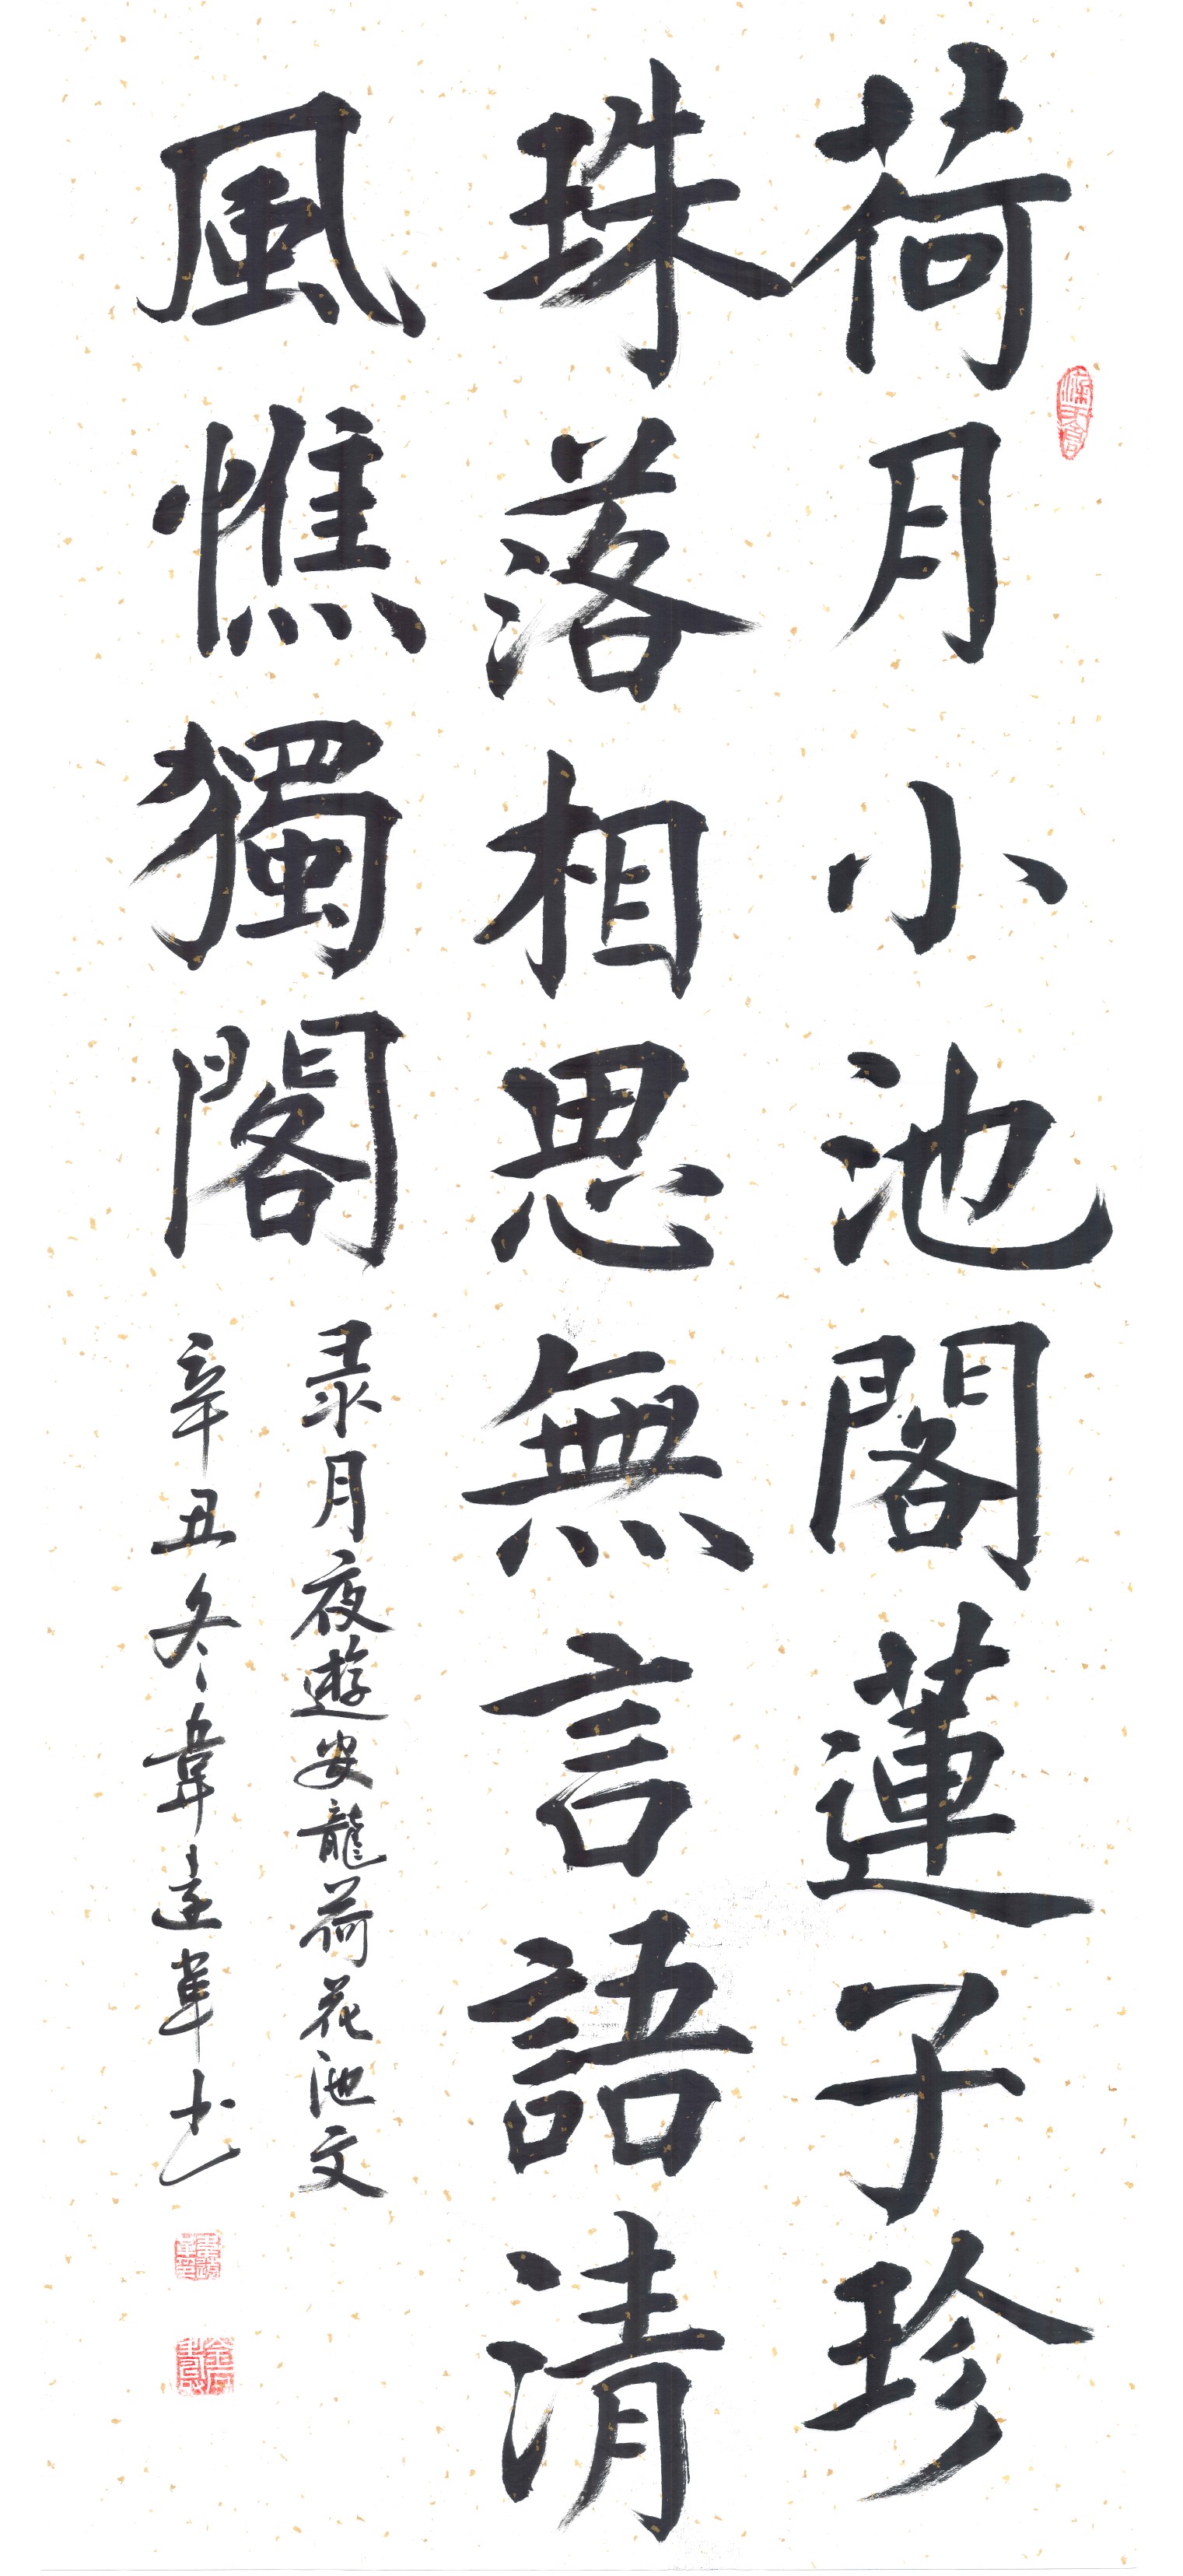 荷月小池閣蓮子珍
珠落相思無言語清
風憔獨閣
录月夜遊安龍荷花池文
辛丑冬韋達軍书